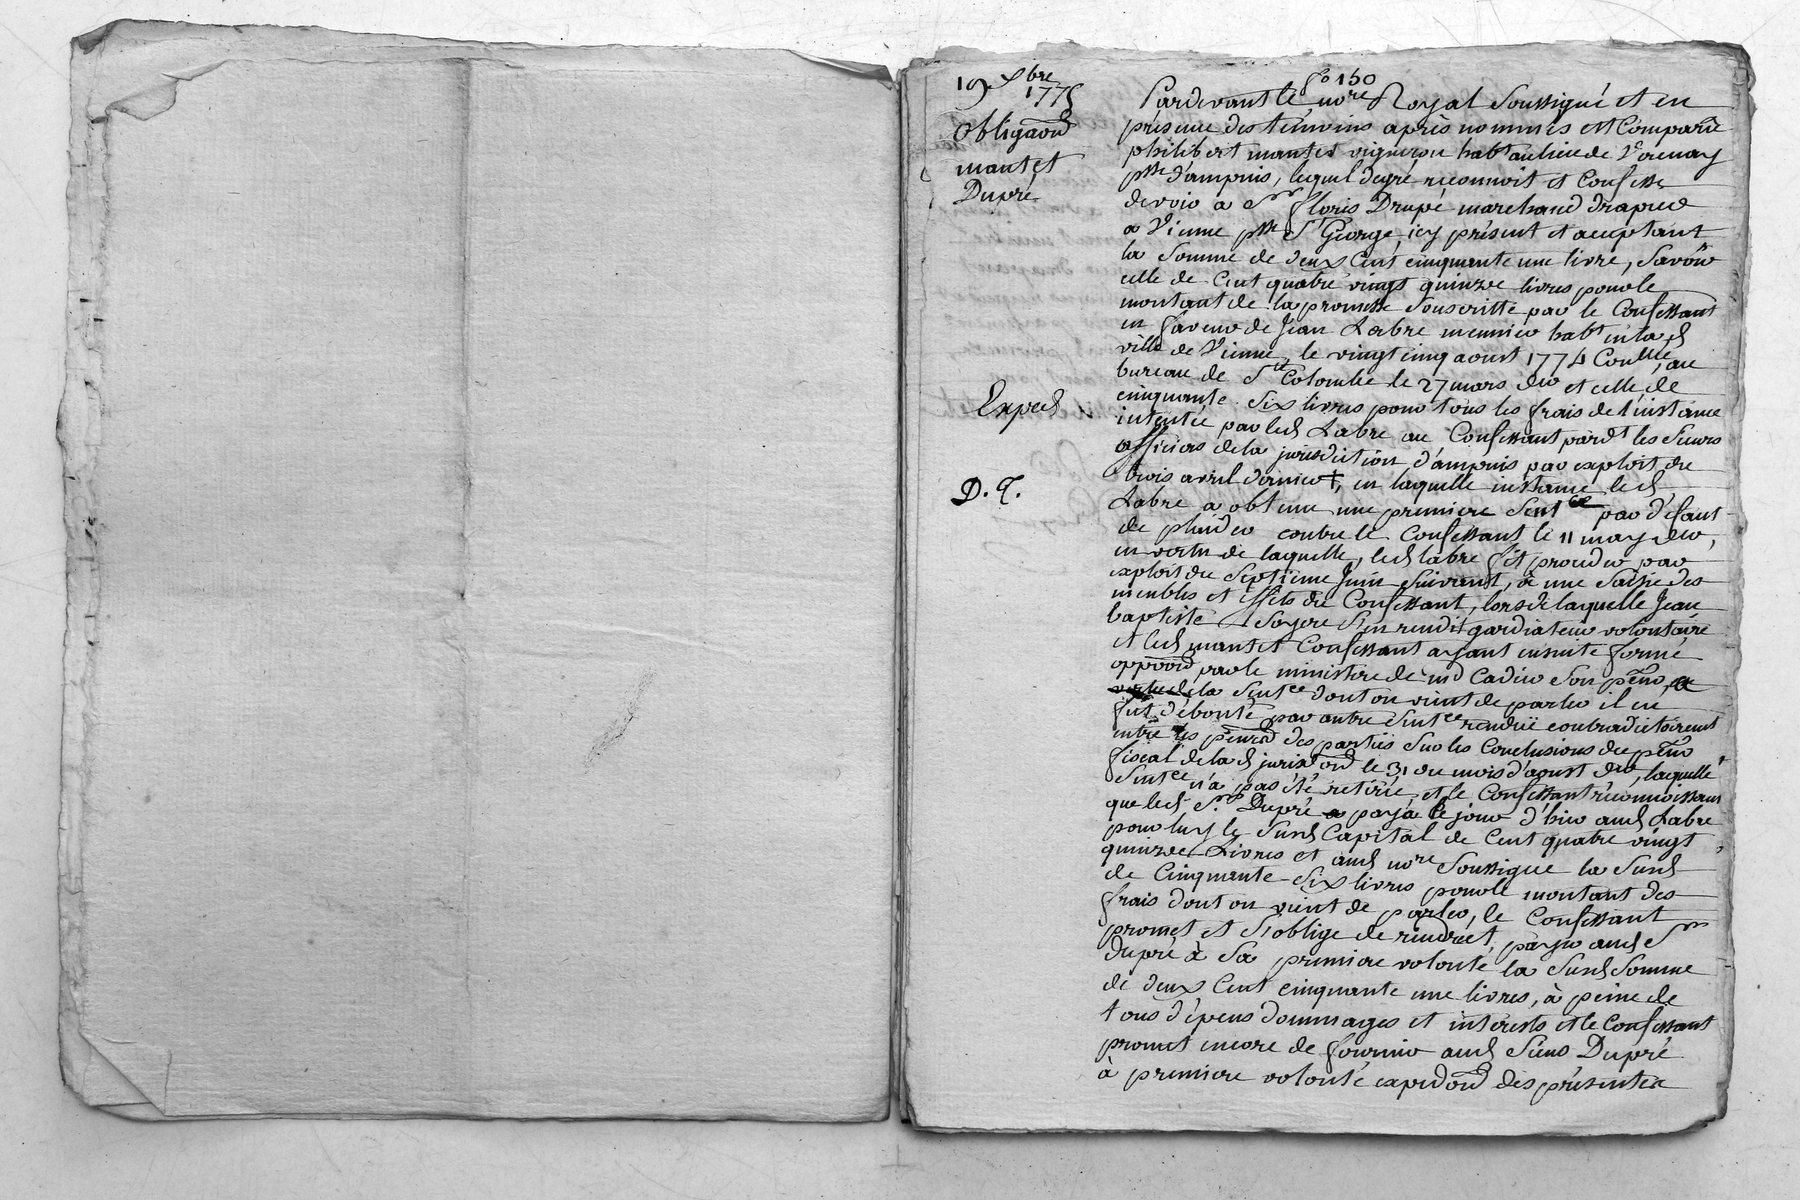 19 xbre
1775
obligaõn
mantet
Dupré
Exped
D. q.
fo 150
Pardevant le nore Royal Soussigné et en
présence des témoins après nommés est Comparu
philibert mantet vigneron habt au lieu de Verenay
psse d'ampuis, lequel de gré reconnoit et Confesse
devoir a Sr floris Drupé marchand drapier
a Vienne psse St George, icy présent et acceptant
la Somme de deux Cent cinquante une livre, Savoir
celle de Cent quatre vingt quinze livres pour le
montant de la promesse Souscritte par le Confessant
en faveur de Jean Labre meunier habt en lad
ville de Vienne, le vingt cinq aoust 1774 Conllée, au
bureau de Ste Colombe le 27 mars der et celle de
cinquante Six livres pour tous les frais de l'instance
intentée par led Labre au Confessant pardt les Sieurs
officiers de la jurisdiction d'ampuis par exploit du
trois avril dernier +, en laquelle instance led
Labre a obtenu une premiere Sentce par défaut
de plaider contre le Confessant le 11 may der,
en vertu de laquelle, led labre fit proceder par
exploit du Septieme Juin Suivant, à une Saisie des
meubles et effets du Confessant, lors de laquelle Jean
baptiste Sayere S'en rendit gardiateur volontaire
et led mantet Confessant ayant ensuite formé
oppoõn par le ministere de md Cadier Son pẽur, a
la Sentce dont on vient de parler il en
fut débouté par autre Sentce rendüe contradictoirement
entre les pẽurs des parties Sur les Conclusions du pẽur
fiscal de lad jurisdõn le 31 du mois d'aoust der, laquelle
Sentce n'a pas été retirée, et le Confessant réconnoissant
que led Sr Dupré a payé le jour d'hier aud Labre
pour luy le Susd Capital de Cent quatre vingt
quinze Livres et aud nore Soussigné la Susd
de Cinquante-Six livres pour le montant des
frais dont on vient de parler, le Confessant
promet et S'oblige de rendre et payer aud Sr
dupré à Sa premiere volonté la Susd Somme
de deux Cent cinquante une livres, à peine de
tous dépens dommages et intérests et le Confessant
promet encore de fournir aud Sieur Dupré
à premiere volonté expedõn des présentes